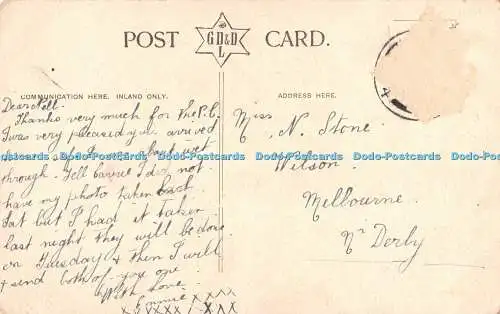 POST CARD.
GD&D
L
COMMUNICATION HERE. INLAND ONLY.
ADDRESS HERE.
Dear Nell.
Thanks very much for the P.C.
I was very pleased you arrived
wet
through. Tell I did not
have my photo taken last
Sat but I had it taken
last night they will be done
on Tuesday & then I will
& send both of you one
With love
xxxx
xxxxx
Miss N. Stone
Wilson
Melbourne
Nr Derby
Dodo-Postcards Dodo-Postcards Dodo-Postcards Dodo-Postcards Dodo-Postcards